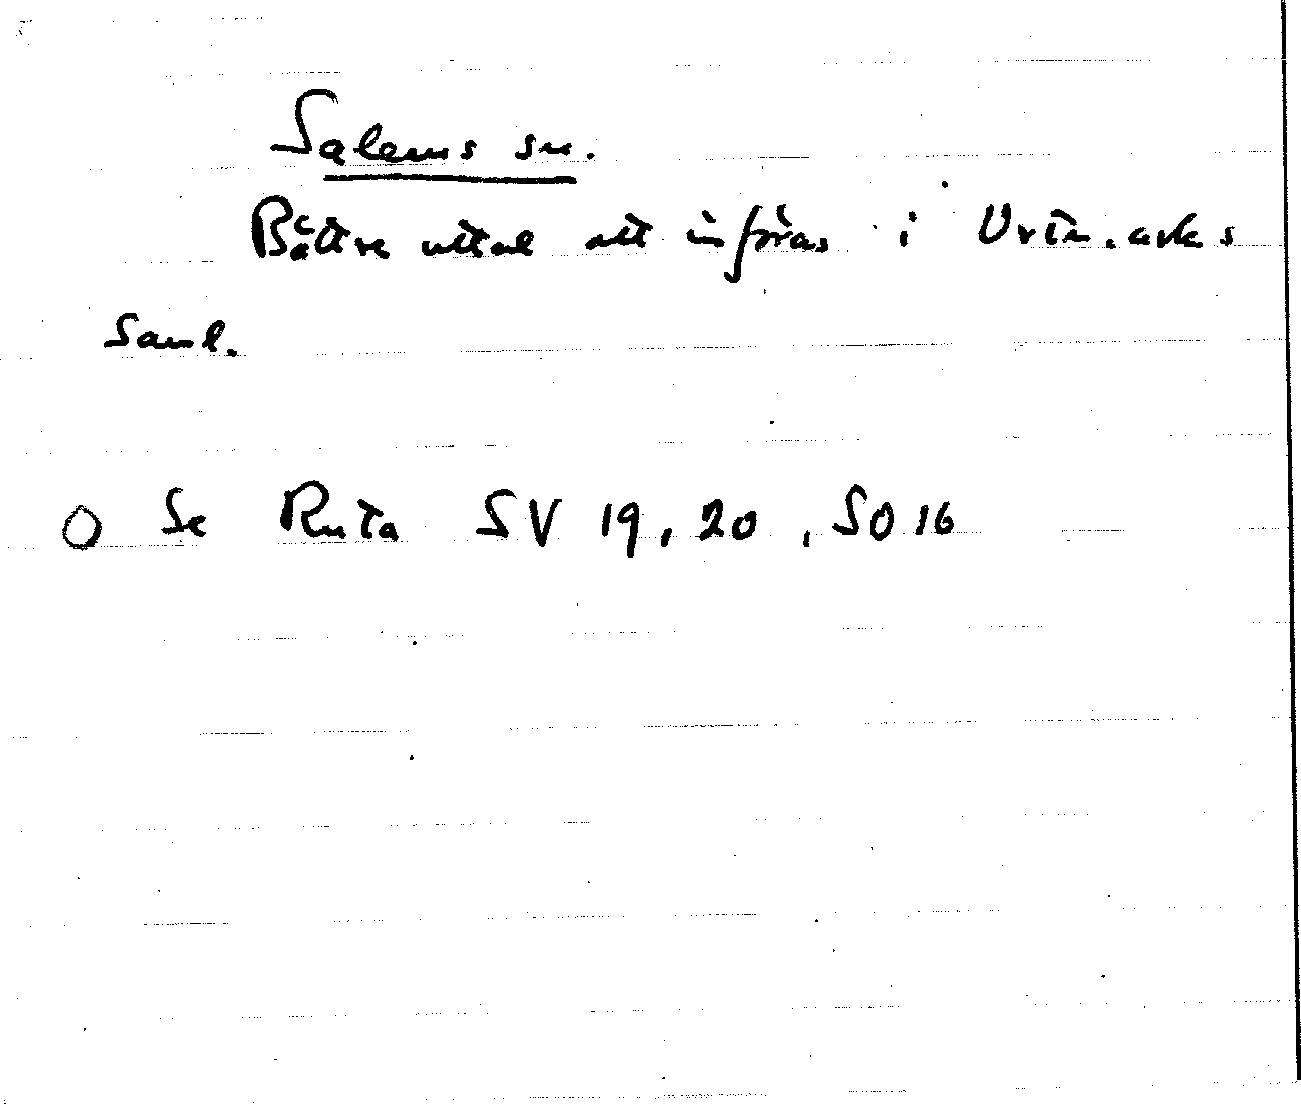 Salems sn.
Bättre uttal att införas i Ortn.arks
Saml.
O Se Ruta SV 19, 20, SO 16